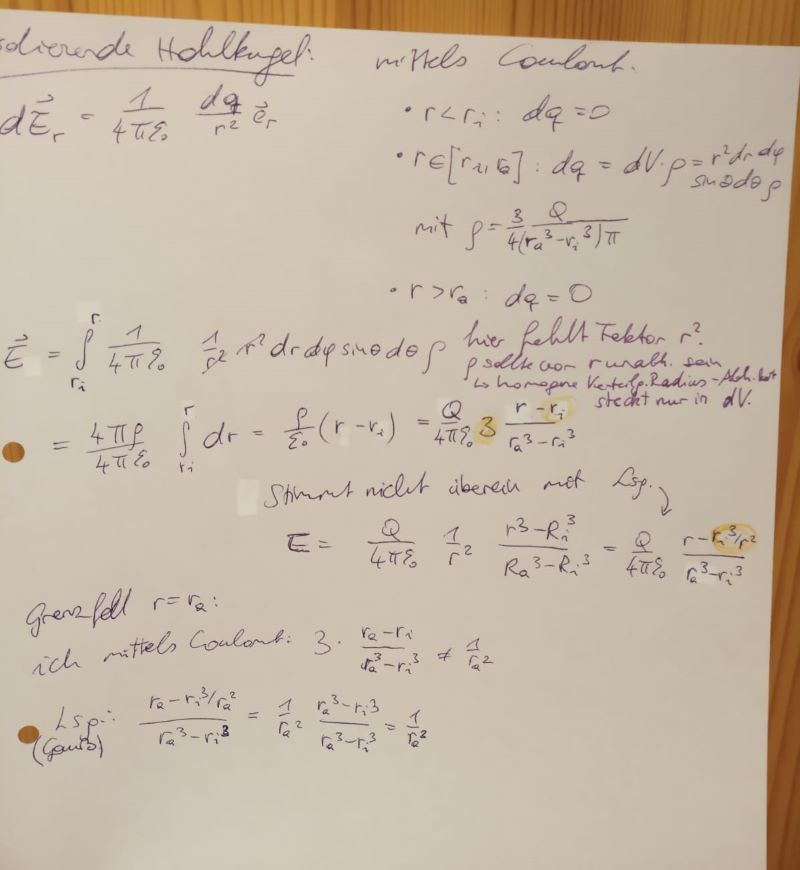 isolierende Hohlkugel:
mittels Coulomb:
dE⃗_r = 1/(4πε₀) dq/r² e⃗_r
• r<r_i : dq = 0
• r∈[r_i, r_a] : dq = dV·ρ = r² dr dφ
sinθ dθ ρ
mit ρ = 3/4 Q/((r_a³-r_i³)π)
• r>r_a : dq = 0
E⃗ = ∫_{r_i}^{r} 1/(4πε₀) 1/r² r² dr dφ sinθ dθ ρ
hier fehlt Faktor r².
ρ sollte von r unabh. sein
↳ homogene Verteilg. Radius-Abh.keit
steckt nur in dV.
= 4πρ/(4πε₀) ∫_{r_i}^{r} dr = ρ/ε₀ (r - r_i) = Q/(4πε₀) 3 (r - r_i)/(r_a³ - r_i³)
Stimmt nicht überein mit Lsp.
E = Q/(4πε₀) 1/r² (r³ - R_i³)/(R_a³ - R_i³) = Q/(4πε₀) (r - r_i³/r²)/(r_a³ - r_i³)
Grenzfall r = r_a:
ich mittels Coulomb: 3 · (r_a - r_i)/(r_a³ - r_i³) ≠ 1/r_a²
Lsp.: (r_a - r_i³/r_a²)/(r_a³ - r_i³) = 1/r_a² (r_a³ - r_i³)/(r_a³ - r_i³) = 1/r_a²
(Gauß)